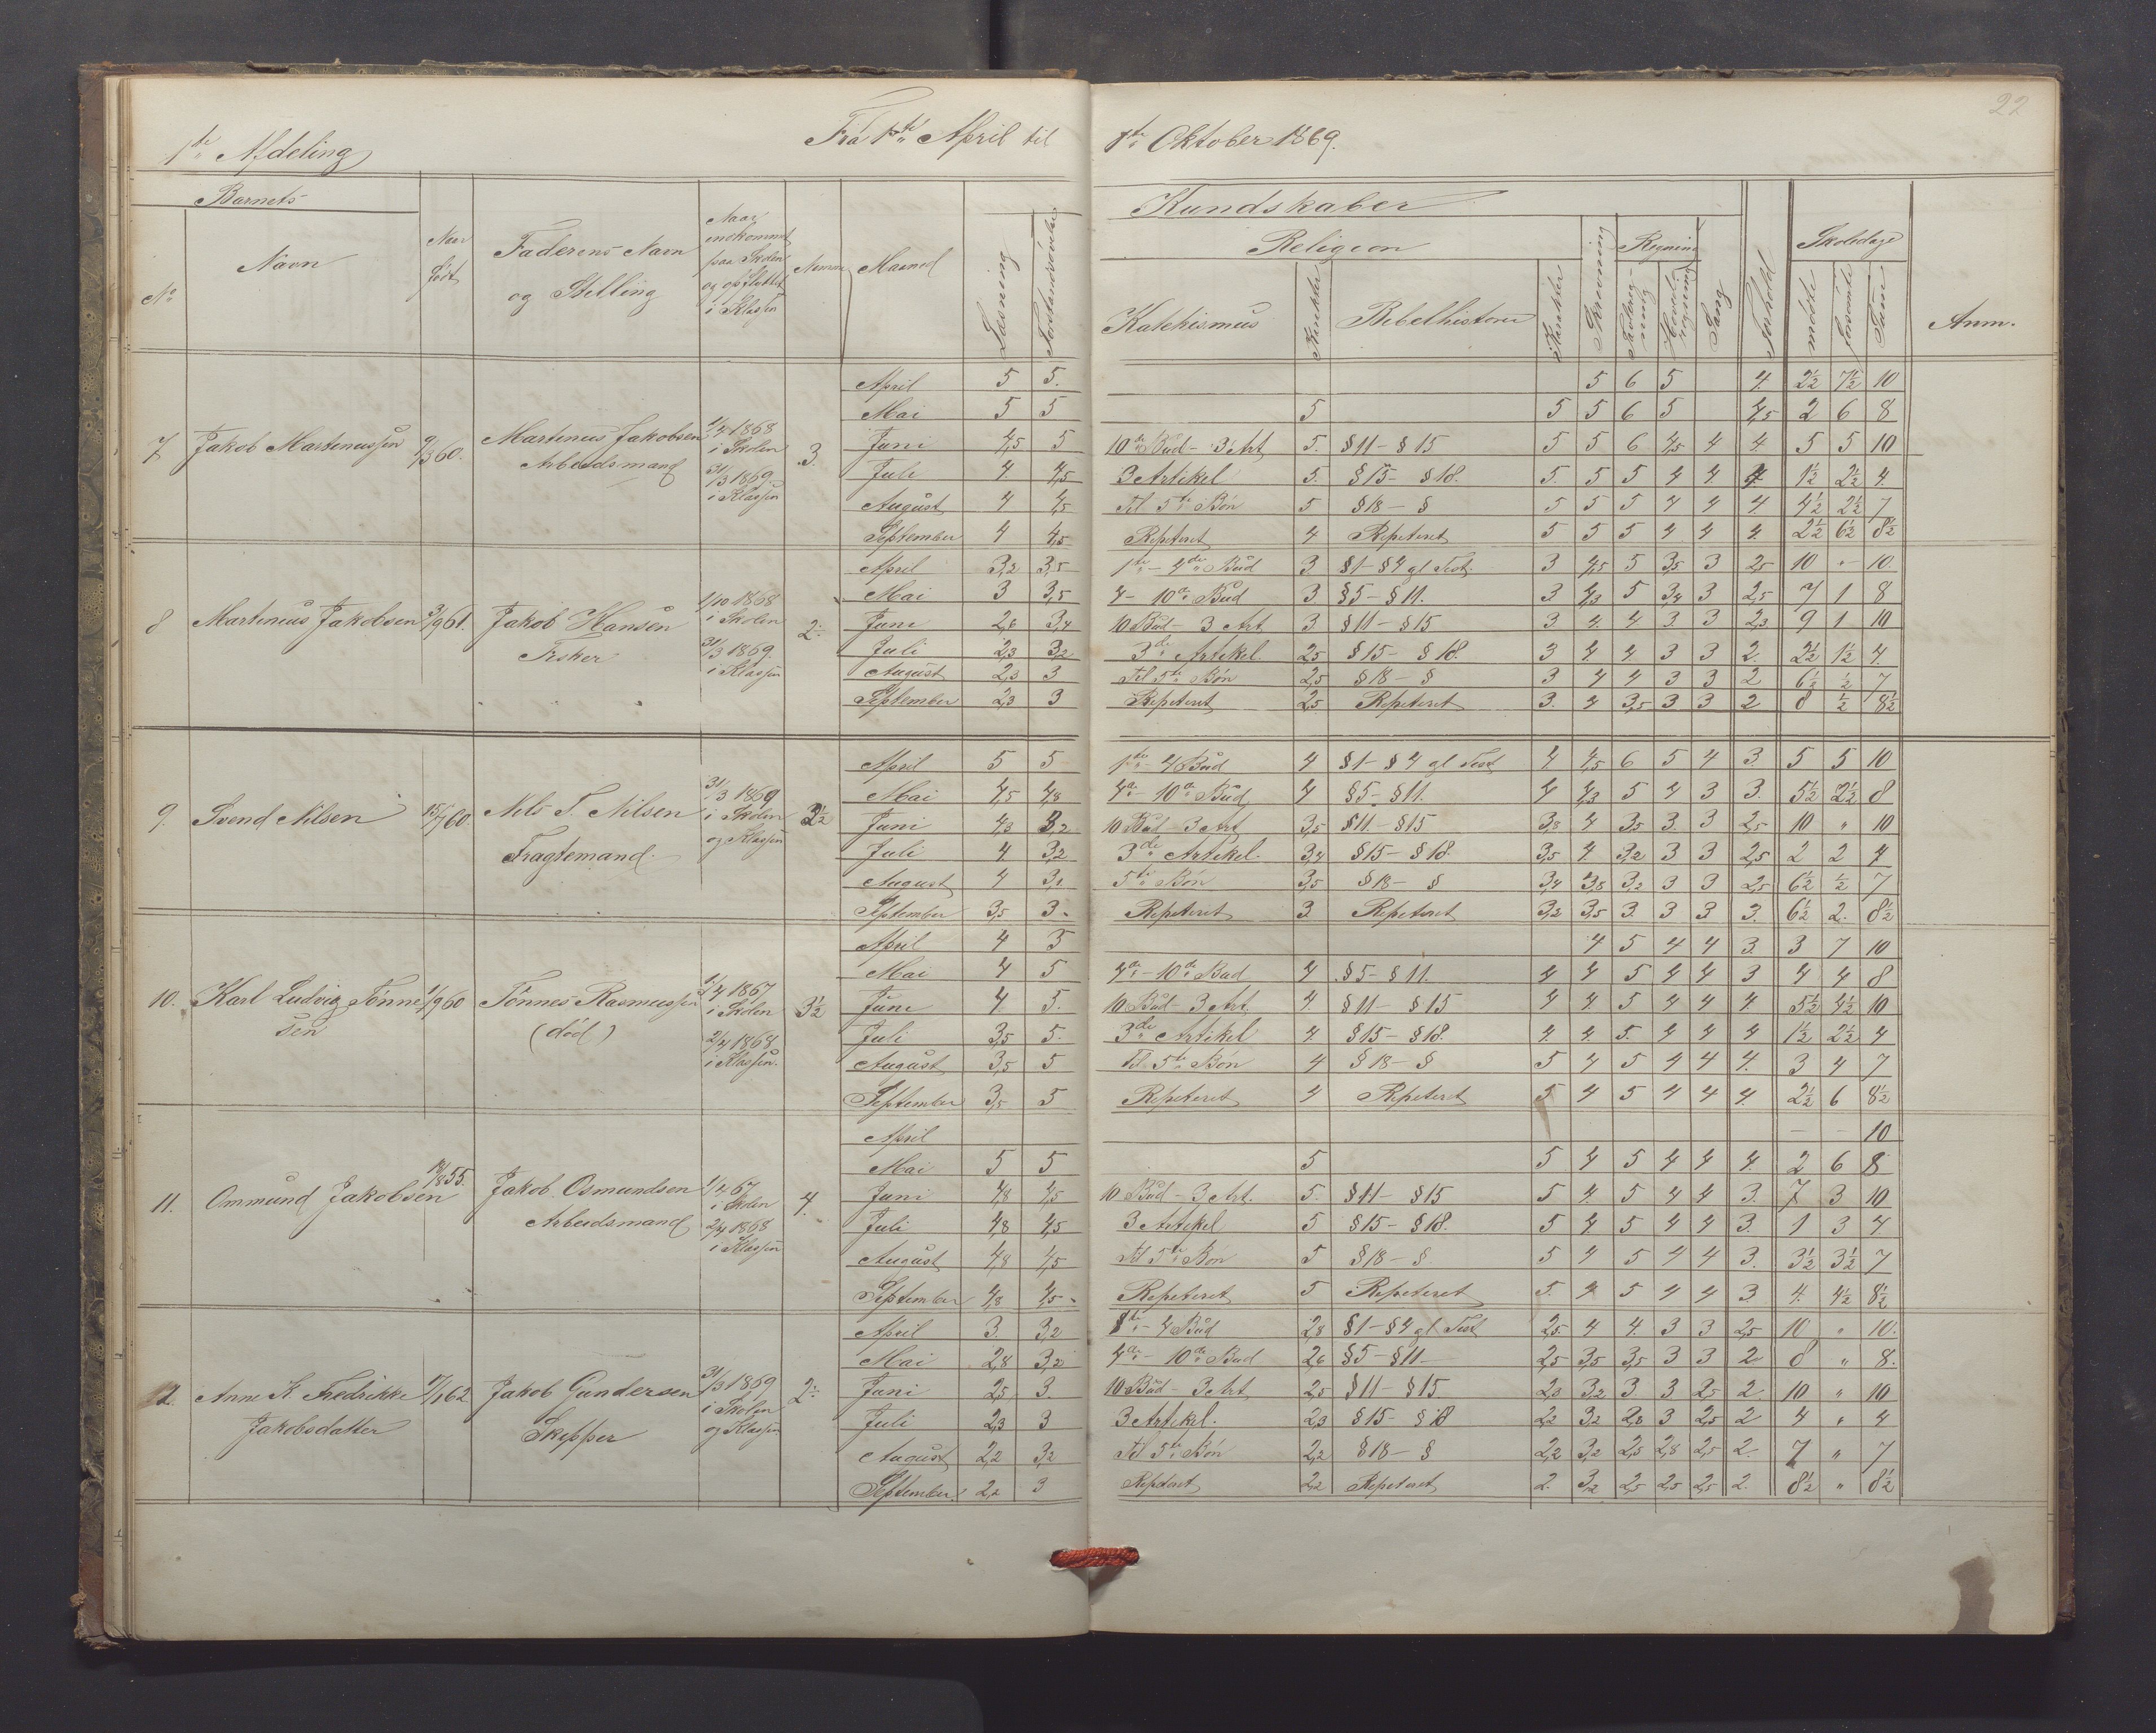 22
1ste Afdeling Fra 1ste April til 1ste Oktober 1869.
Barnets Kundskaber
No Navn Naar født Faderens Navn og Stilling Naar indkommet paa Skolen og opflyttet i Klassen Maaned Læsning Religion Skrivning Regning Sang Forhold Skoledage
Katekismus Karakter Bibelhistorie Karakter Tavleregning Hovedregning mødte forsømte Sum Anm.
April 5 5. 5 6 5 4. 2½ 7½ 10
Mai 5 5 5 5 5 6 5 4,5 2 6 8
7 Jakob Martinussen 9/3 60. Martinus Jakobsen Arbeidsmand 1/4 1868 i Skolen 31/3 1869 i Klassen 3.
Juni 4,5 5 10de Bud - 3 Art 5. § 11 - § 15 5 5 6 4,5 4 4. 5 5 10
Juli 4. 4,5 3 Artikel 5. § 15 - § 18. 5. 5 5 4 4 4 1½ 2½ 4.
August 4 4,5 til 5te Bøn 5 § 18 - § 5 5 5 4 4 4 4½ 2½ 7
September 4 4,5 Repeteret 4 Repeteret 5 5 5 4 4 4 2½ 6½ 8½
April 3,2 3,5 1ste - 4de Bud 3. § 1 - § 4 gl Test. 3 4,5 5 3,5 3 2,5 10 " 10.
Mai 3 3,5 4 - 10de Bud 3 § 5 - § 11. 3 4,3 5 3,4 3 2,5 7 1 8
8 Martinius Jakobsen 3/9 61. Jakob Hansen Fisker 1/10 1868 i Skolen 31/3 1869 i Klassen 2.
Juni 2,6 3,4 10 Bud - 3 Art. 3 § 11 - § 15 3 4. 4 3 3 2,3 9 1 10
Juli 2,3 3,2 3die Artikel. 2,5 § 15 - § 18. 3 4. 4 3 3 2. 2½ 1½ 4.
August 2,3 3 til 5te Bøn 2,5 § 18 - § 3 4 4 3 3 2 6½ ½ 7
September 2,3 3 Repeteret 2,5 Repeteret 3. 4 3,5 3 3 2 8 ½ 8½
April 5 5 1ste - 4 Bud 4 § 1 - § 4 gl Test 4 4,5 6 5 4 3. 5 5 10
Mai 4,5 4,8 4de - 10de Bud 4 § 5 - § 11. 4 4,3 5 4 3 3. 5½ 2½ 8
9. Svend Nilsen 15/7 60. Nils T. Nilsen Fragtemand. 31/3 1869 i Skolen og Klassen 3½
Juni 4,3 3,2 10 Bud - 3 Art 3,5 § 11 - § 15 3,8 4 3,5 3. 3 2,5 10 " 10
Juli 4 3,2 3die Artikel. 3,4 § 15 - § 18. 3,5 4. 3,2 3 3 2,5 2 2 4
August 4 3,1 5te Bøn 3,5 § 18 - § 3,4 3,8 3,2 3 3 2,5 6½ ½ 7
September 3,5 3. Repeteret 3. Repeteret 3,2 3,5 3. 3 3 3. 6½ 2. 8½
April 4 5 4 5 4 4 3. 3 7 10
Mai 4 5 4de - 10de Bud 4 § 5 - § 11. 4 4 5 4 4 3 4 4 8
10. Karl Ludvig Tønnesen 1/9 60 Tønnes Rasmussen (død) 1/4 1867 i Skolen 2/4 1868 i Klassen. 3½
Juni 4. 5. 10 Bud - 3 Art. 4. § 11 - § 15 4 4. 5 4 4 4. 5½ 4½ 10
Juli 3,5 5. 3die Artikel 4. § 15 - § 18. 4. 4. 5. 4 4 4 1½ 2½ 4
August 3,5 5 til 5te Bøn 4 § 18 - § 5 4 5 4 4 4. 3 4 7
September 3,5 5 Repeteret 4 Repeteret 5 4 5 4 4 4. 2½ 6 8½
April - - 10
Mai 5 5 5 5 4 5 4 4 4. 2 6 8
11. Ommund Jakobsen Jakob Osmundsen Arbeidsmand 1/4 67 i Skolen 2/4 1868 i Klassen 4.
Juni 4,8 4,5 10 Bud - 3 Art. 5. § 11 - § 15 5 4. 5 4 4 3. 7 3 10
Juli 4,8 4,5 3 Artikel 5 § 15 - § 18. 5 4. 5 4 4 3. 1 3 4.
August 4,8 4,5 til 5te Bøn 5 § 18 - §. 5 4 5 4 4 3. 3½ 3½ 7
September 4,8 4,5. Repeteret 5 Repeteret 5. 4 5 4 4 3 4. 4½ 8½
April 3. 3,2 1ste - 4 Bud 2,8 § 1 - § 4 gl Test 2,5. 4 4. 3 3 2,5 10 " 10.
Mai 2,8 3,2 4de - 10de Bud 2,6 § 5 - § 11 2,5 3,5 3,5 3 3 2 8 " 8.
12. Anne K. Fredrikke Jakobsdatter 7/1 62 Jakob Gundersen Skipper 31/3 1869 i Skolen og Klassen 2.
Juni 2,5 3. 10 Bud - 3 Art 2,5 § 11 - § 15. 2,3 3,2 3 3 2,5 2 10 " 10
Juli 2,3 3 3 Artikel. 2,3 § 15 - § 18 2,2 3,2 2,8 3 2,5 2 4 " 4
August 2,2 3,2 til 5te Bøn 2,2 § 18 - § 2,2 3,2 2,5 2,8 2,5 2. 7 " 7
September 2,2 3 Repeteret 2,2 Repeteret 2. 3,2 2,5 2,5 2,5 2. 8½ " 8½